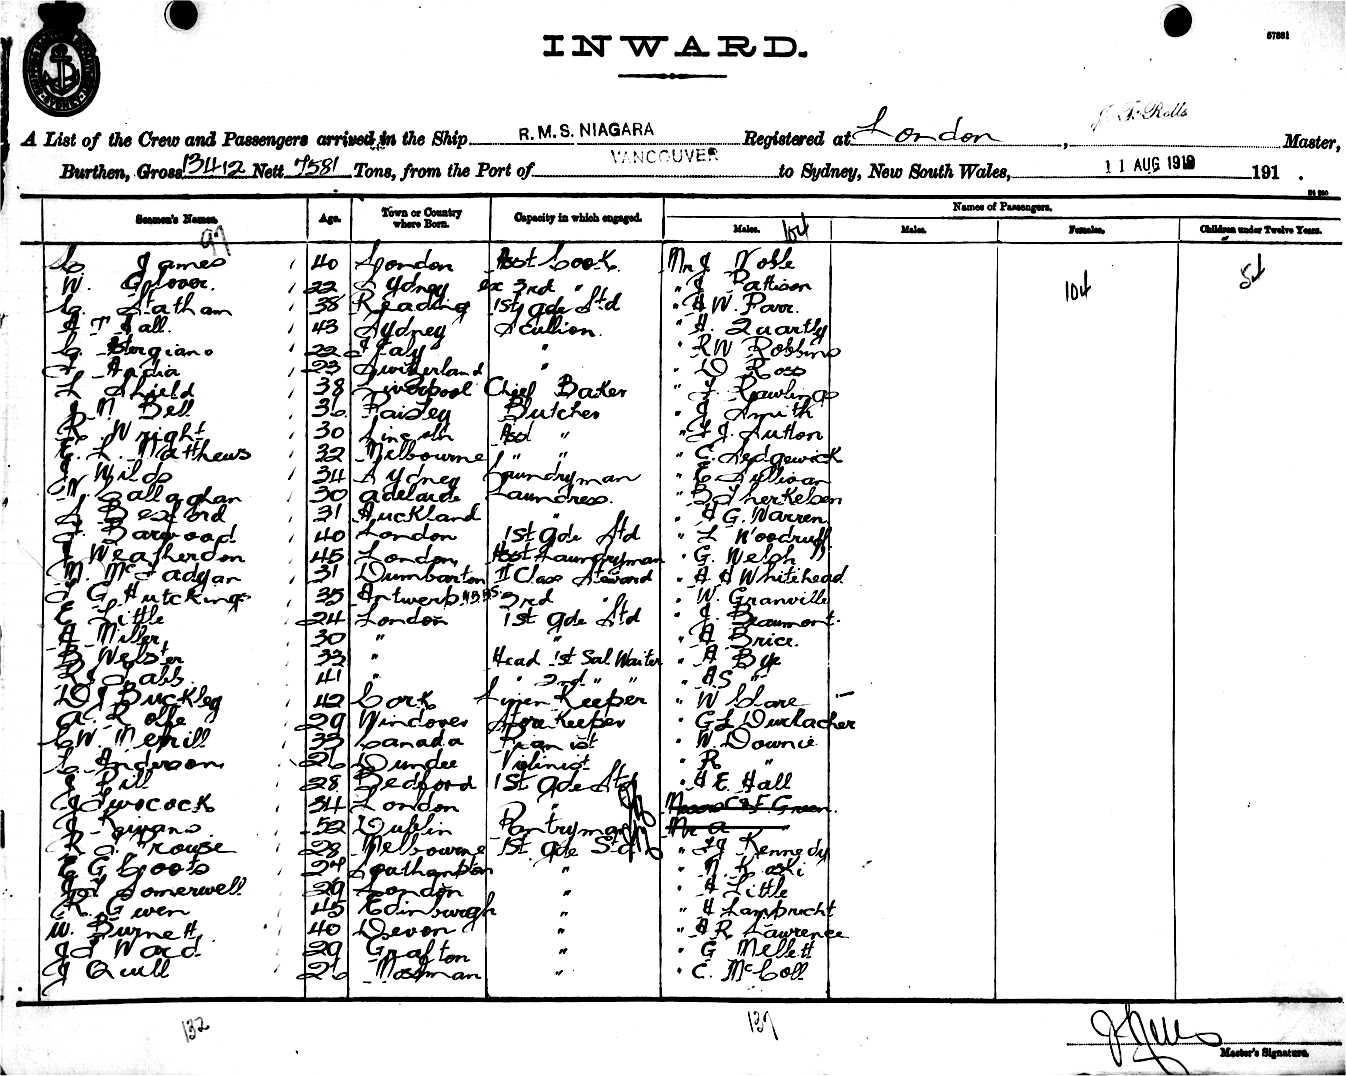 57881
INWARD.
J. F. Rolls
A List of the Crew and Passengers arrived in the Ship R.M.S. NIAGARA Registered at London, Master,
Burthen, Gross 13412 Nett 7581 Tons, from the Port of VANCOUVER to Sydney, New South Wales, 11 AUG 1919 191 .
Seamen's Names. Age. Town or Country where Born. Capacity in which engaged. Names of Passengers.
Males. Males. Females. Children under Twelve Years.
97 104
104 5
C. James 40 London Asst Cook Mr J Noble
W. Glover. 22 Sydney ex 3rd " " J Pattison
C. Statham 38 Reading 1st gde Std " A W. Parr.
A T Hall. 43 Sydney Scullion. " H. Quartly
C. 22 Italy " " R W Robbins
23 Switzerland " " D Ross
L Shield 38 Liverpool Chief Baker " F Rawlings
J M Bell 36 Paisley Butcher " J Smith
R Wright 30 Lincoln Asst " " F J. Sutton
E. L. Matthews 32 Melbourne " " " C Sedgewick
J Wilds 34 Sydney Laundryman " E Sullivan
N Callaghan 30 adelaide Laundress. " B Therkelsen
A Bexford 31 Auckland " " A G. Warren
J Barwood 40 London 1st gde Std " L Woodruff
J Weatherdon 45 London Asst Laundryman " G. Welsh
M. McFadyan 31 Dumbarton II Class Steward " A H Whitehead
J G Hutckings 35 Antwerp 3rd " " W Granville
E Little 24 London 1st gde Std " J. Beaumont.
A Miller 30 " " " A Brice
B Webster 33 " Head 1st Sal Waiter " A Bye
R J Labb 41 " " 2nd " " " A S "
D J Buckley 42 Cork Linen Keeper " W Clare
A. Rolfe 29 Windover Store Keeper " G L Durlacher
C W Merrill 33 Canada Pianist " W. Downie
C Anderson 26 Dundee Violinist " R "
J Pill 28 Bedford 1st gde Std " A E Hall
J Twocock 34 London " C & F. Green.
J 52 Dublin Pantryman Mr A
R J. Prouse 28 Melbourne 1st gde Std " F J Kennedy
E G Coots 24 Southampton " " N Koski
J Somerwell 29 London " " A Little
R. Gwen 45 Edinburgh " " H Lamprecht
W. Burnett 40 Devon " " A R Lawrence
J S Ward 29 Grafton " " G Mellett
J Quill 26 Mosman " " C. McColl
132 137
Master's Signature.